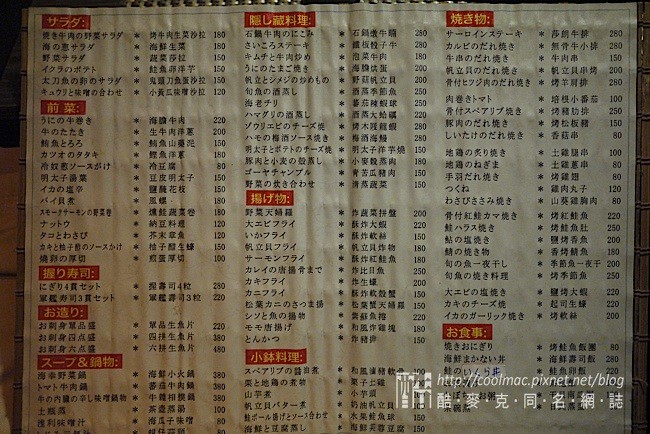 サラダ:
焼き牛肉の野菜サラダ * 烤牛肉生菜沙拉 180
海の恵サラダ * 海鮮生菜 180
野菜サラダ * 蔬菜沙拉 150
イクラのポテト * 鮭魚卵洋芋 150
太刀魚の卵のサラダ * 鬼頭刀魚蛋沙拉 150
キュウリと味噌の合わせ * 小黃瓜味噌沙拉 120
前菜:
うにの牛巻き * 海膽牛肉 220
牛のたたき * 生牛肉洋蔥 200
鮪魚とろろ * 鮪魚山藥泥 150
カツオのタタキ * 鰹魚洋蔥 180
冷奴煎ソースがけ * 冷豆腐 80
明太子湯葉 * 豆皮明太子 150
イカの塩辛 * 鹽醃花枝 150
バイ貝煮 * 風螺 180
スモークサーモンの野菜巻 * 燻鮭蔬菜卷 180
ナットウ * 納豆料理 100
タコとわさび * 芥末章魚 150
カキと柚子酢のソースかけ * 柚子醋生蠔 150
焼卵の厚切 * 煎蛋厚切 100
握り寿司:
にぎり4貫セット * 握壽司4粒 280
軍艦寿司3貫セット * 軍艦壽司3粒 220
お造り:
お刺身單品盛 * 單品生魚片 220
お刺身四点盛 * 四拼生魚片 380
お刺身六点盛 * 六拼生魚片 480
スープ&鍋物:
海幸野菜鍋 * 海鮮小火鍋 380
トマト牛肉鍋 * 蕃茄牛肉鍋 350
牛の内臓の辛し味噌鍋物
土瓶蒸 * 茶壺蒸湯 100
浅利味噌汁 * 海瓜子味噌
隠し蔵料理:
石鍋牛肉のにこみ * 石鍋燉牛腩 180
さいころステーキ * 鐵板骰子牛 280
キムチと牛肉炒め * 泡菜牛肉 180
うにのたまご焼き * 海膽烘蛋 200
帆立とシメジの炒めもの * 野菇帆立貝 200
旬魚の酒蒸し * 酒蒸季節魚 280
海老チリ * 蕃茄辣蝦球 200
ハマグリの酒蒸し * 酒蒸大蛤蠣 220
ゾウリエビのチーズ焼 * 烤木屐龍蝦 280
ハモの梅酒ソース焼き * 梅酒海鰻 280
明太子とポテトのチーズ焼 * 明太子洋芋燒 150
豚肉と小麦の殻蒸し * 小麥殼蒸肉 180
ゴーヤチャンプル * 青苦瓜豬肉 150
野菜の炊き合わせ * 清蒸蔬菜 150
揚げ物:
野菜天婦羅 * 炸蔬菜拼盤 200
大エビフライ * 酥炸大蝦 220
いかフライ * 酥炸軟絲 180
帆立貝フライ * 帆立貝炸物 180
サーモンフライ * 炸鮭魚 200
カレイの唐揚骨まで * 炸比目魚 250
カキフライ * 炸生蠔 200
カニフライ * 酥炸軟殼蟹 150
松葉カニのさつま揚 * 松葉蟹天婦羅 200
シソと魚の揚物 * 紫蘇魚捲 220
モモ唐揚げ * 和風炸雞塊 180
とんかつ * 炸豬排 150
小鉢料理:
スペアリブの醬油煮 * 和風滷豬軟
栗と地鶏の煮物 * 栗子土雞
山芋煮 * 小芋頭
帆立貝バター煮 * 奶油帆立貝
海鮮と豆腐蒸し
焼き物:
サーロインステーキ * 莎朗牛排 280
カルビのだれ焼き * 無骨牛小排 280
牛串のだれ焼き * 牛肉串 150
帆立貝のだれ焼き * 帆立貝串烤 200
骨付ヒツジ肉のだれ焼き * 烤羊肩排 380
肉巻きトマト * 培根小番茄 100
骨付スペアリブ焼き * 烤豬肋排 250
豚肉のだれ焼き * 烤松板豬 200
しいたけのだれ焼き * 香菇串 80
地鶏の炙り焼き * 土雞腿串 150
地鶏のねぎま * 土雞蔥串 150
手羽だれ焼き * 烤雞翅 80
つくね * 雞肉丸子 120
わさびささみ焼き * 山葵雞胸肉 80
骨付紅鮭カマ焼き * 烤紅鮭魚 200
鮭ハラス焼き * 烤鮭魚肚 250
鮎の塩焼き * 鹽烤香魚 200
鯖の焼き物 * 香烤鯖魚 180
旬の魚一夜干し * 季節魚一夜干 200
旬魚の焼き料理 * 烤季節魚 250
大エビの塩焼き * 鹽烤大蝦 220
カキのチーズ焼き * 起司生蠔 220
イカのガーリック焼き * 烤軟絲 200
お食事:
焼きおにぎり * 烤鮭魚飯團 80
海鮮まかない丼 * 海鮮壽司飯 380
鮭のいくら丼 * 鮭魚卵飯
http://coolmac.pixnet.net/blog
酷·麥·克·同·名·網·誌